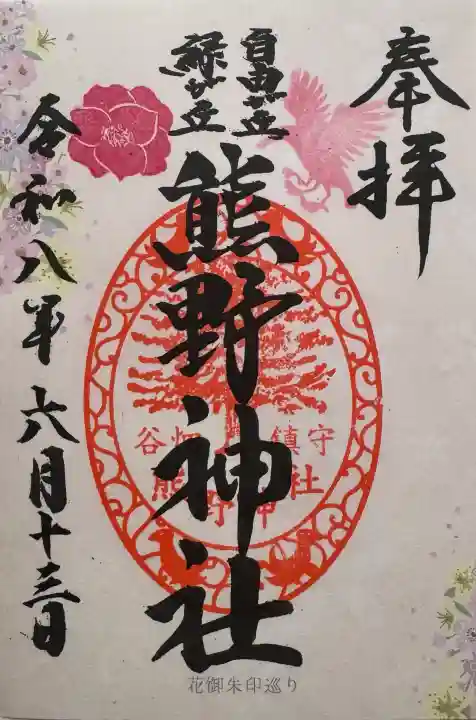 奉拝
自由が丘
緑が丘
熊野神社
谷畑 鎮守
熊野神社
令和八年六月十三日
花御朱印巡り